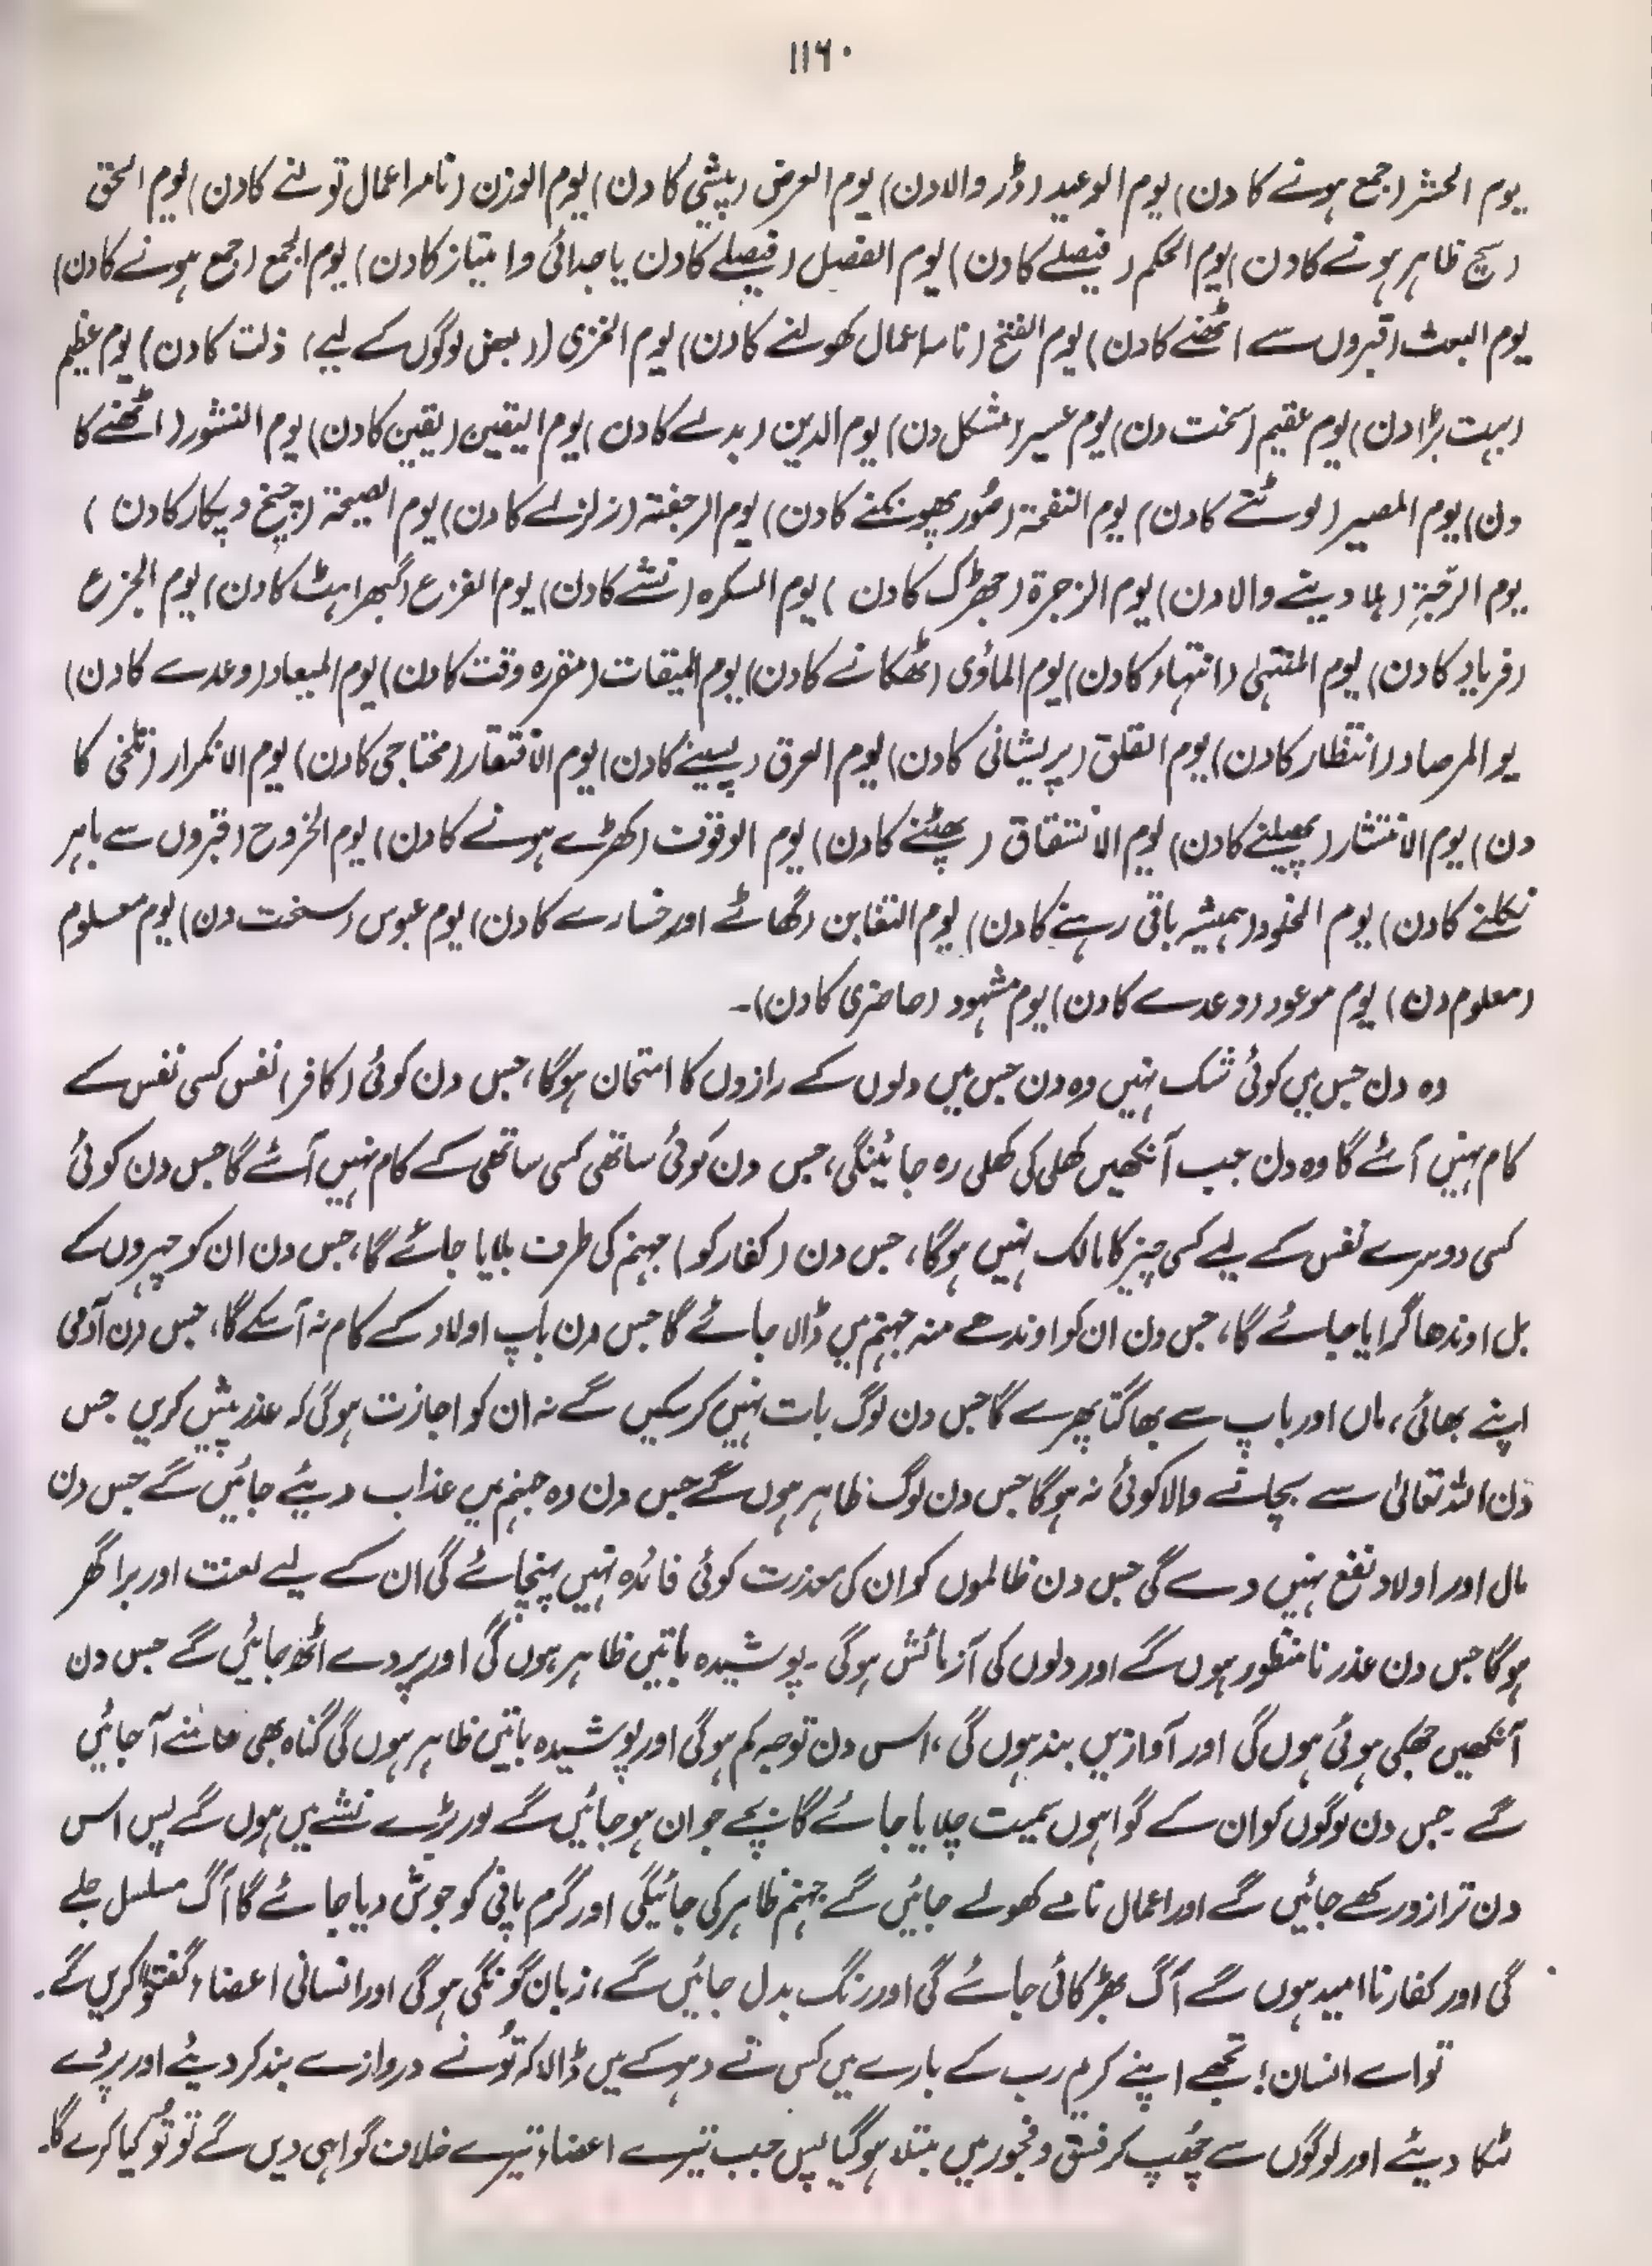 ۱۱۶۰
یوم الحشر (جمع ہونے کا دن) یوم الوعید (ڈر والا دن) یوم العرض (پیشی کا دن) یوم الوزن (نامہ اعمال تولنے کا دن) یوم الحق
(سچ ظاہر ہونے کا دن) یوم الحکم (فیصلے کا دن) یوم الفصل (فیصلے کا دن یا جدائی و امتیاز کا دن) یوم الجمع (جمع ہونے کا دن)
یوم البعث (قبروں سے اٹھنے کا دن) یوم الفتح (نامہ اعمال کھولنے کا دن) یوم الخزی ((بعض لوگوں کے لیے) ذلت کا دن) یوم عظیم
(بہت بڑا دن) یوم عقیم (سخت دن) یوم عسیر (مشکل دن) یوم الدین (بدلے کا دن) یوم الیقین (یقین کا دن) یوم النشور (اٹھنے کا
دن) یوم المصیر (لوٹنے کا دن) یوم النفخۃ (صُور پھونکنے کا دن) یوم الرجفتہ (زلزلے کا دن) یوم الصیحۃ (چیخ و پکار کا دن )
یوم الرجّۃِ (ہلا دینے والا دن) یوم الزجرۃ (جھڑک کا دن ) یوم السکرہ (نشے کا دن) یوم الفزع (گبھراہٹ کا دن) یوم الجزع
(فریاد کا دن) یوم المنتہیٰ (انتہاء کا دن) یوم الماؤی (ٹھکانے کا دن) یوم المیقات (مقررہ وقت کا دن) یوم المیعاد (وعدے کا دن)
یو المرصاد (انتظار کا دن) یوم القلق (پریشانی کا دن) یوم العرق (پسینے کا دن) یوم الافتقار (محتاجی کا دن) یوم الانکرار (تلخی کا
دن) یوم الانتشار (پھیلنے کا دن) یوم الانشقاق (پھٹنے کا دن) یوم الوقوف (کھڑے ہونے کا دن) یوم الخروج (قبروں سے باہر
نکلنے کا دن) یوم الخلود (ہمیشہ باقی رہنے کا دن) یوم التغابن (گھاٹے اور خسارے کا دن) یوم عبوس (سخت دن) یوم معلوم
(معلوم دن) یوم موعود (وعدے کا دن) یوم مشہود (حاضری کا دن)۔
وہ دن جس میں کوئی شک نہیں وہ دن جس میں دلوں کے رازوں کا امتحان ہوگا، جس دن کوئی (کافر) نفس کسی نفس کے
کام نہیں آئے گا وہ دن جب آنکھیں کھلی کی کھلی رہ جائینگی، جس دن کوئی ساتھی کسی ساتھی کے کام نہیں آئے گا جس دن کوئی
کسی دوسرے نفس کے لیے کسی چیز کا مالک نہیں ہوگا، جس دن (کفار کو) جہنم کی طرف بلایا جائے گا، جس دن ان کو چہروں کے
بل اوندھا گرایا جائے گا، جس دن ان کو اوندھے منہ جہنم میں ڈالا جائے گا جس دن باپ اولاد کے کام نہ آسکے گا، جس دن آدمی
اپنے بھائی، ماں اور باپ سے بھاگتا پھرے گا جس دن لوگ بات نہیں کر سکیں گے نہ ان کو اجازت ہوگی کہ عذر پیش کریں جس
دن اللہ تعالیٰ سے بچانے والا کوئی نہ ہوگا جس دن لوگ ظاہر ہوں گے جس دن وہ جہنم میں عذاب دیئے جائیں گے جس دن
مال اور اولاد نفع نہیں دے گی جس دن ظالموں کو ان کی معذرت کوئی فائدہ نہیں پہنچائے گی ان کے لیے لعنت اور برا گھر
ہوگا جس دن عذر نامنظور ہوں گے اور دلوں کی آزمائش ہوگی ۔ پوشیدہ باتیں ظاہر ہوں گی اور پردے اٹھ جائیں گے جس دن
آنکھیں جھکی ہوئی ہوں گی اور آوازیں بند ہوں گی، اس دن توجہ کم ہوگی اور پوشیدہ باتیں ظاہر ہوں گی گناہ بھی سامنے آ جائیں
گے ۔ جس دن لوگوں کو ان کے گواہوں سمیت چلایا جائے گا بچے جوان ہو جائیں گے اور بڑے نشے میں ہوں گے پس اس
دن ترازو رکھے جائیں گے اور اعمال نامے کھولے جائیں گے جہنم ظاہر کی جائیگی اور گرم پانی کو جوش دیا جائے گا آگ مسلسل جلے
گی اور کفار ناامید ہوں گے آگ بھڑکائی جائے گی اور رنگ بدل جائیں گے، زبان گونگی ہوگی اور انسانی اعضاء گفتگو کریں گے۔
تو اے انسان! تجھے اپنے کریم رب کے بارے میں کس نے دھوکے میں ڈالا کہ تُو نے دروازے بند کر دیئے اور پردے
لٹکا دیئے اور لوگوں سے چُھپ کر فسق و فجور میں مبتلا ہو گیا پس جب تیرے اعضاء تیرے خلاف گواہی دیں گے تو تُو کیا کرے گا۔